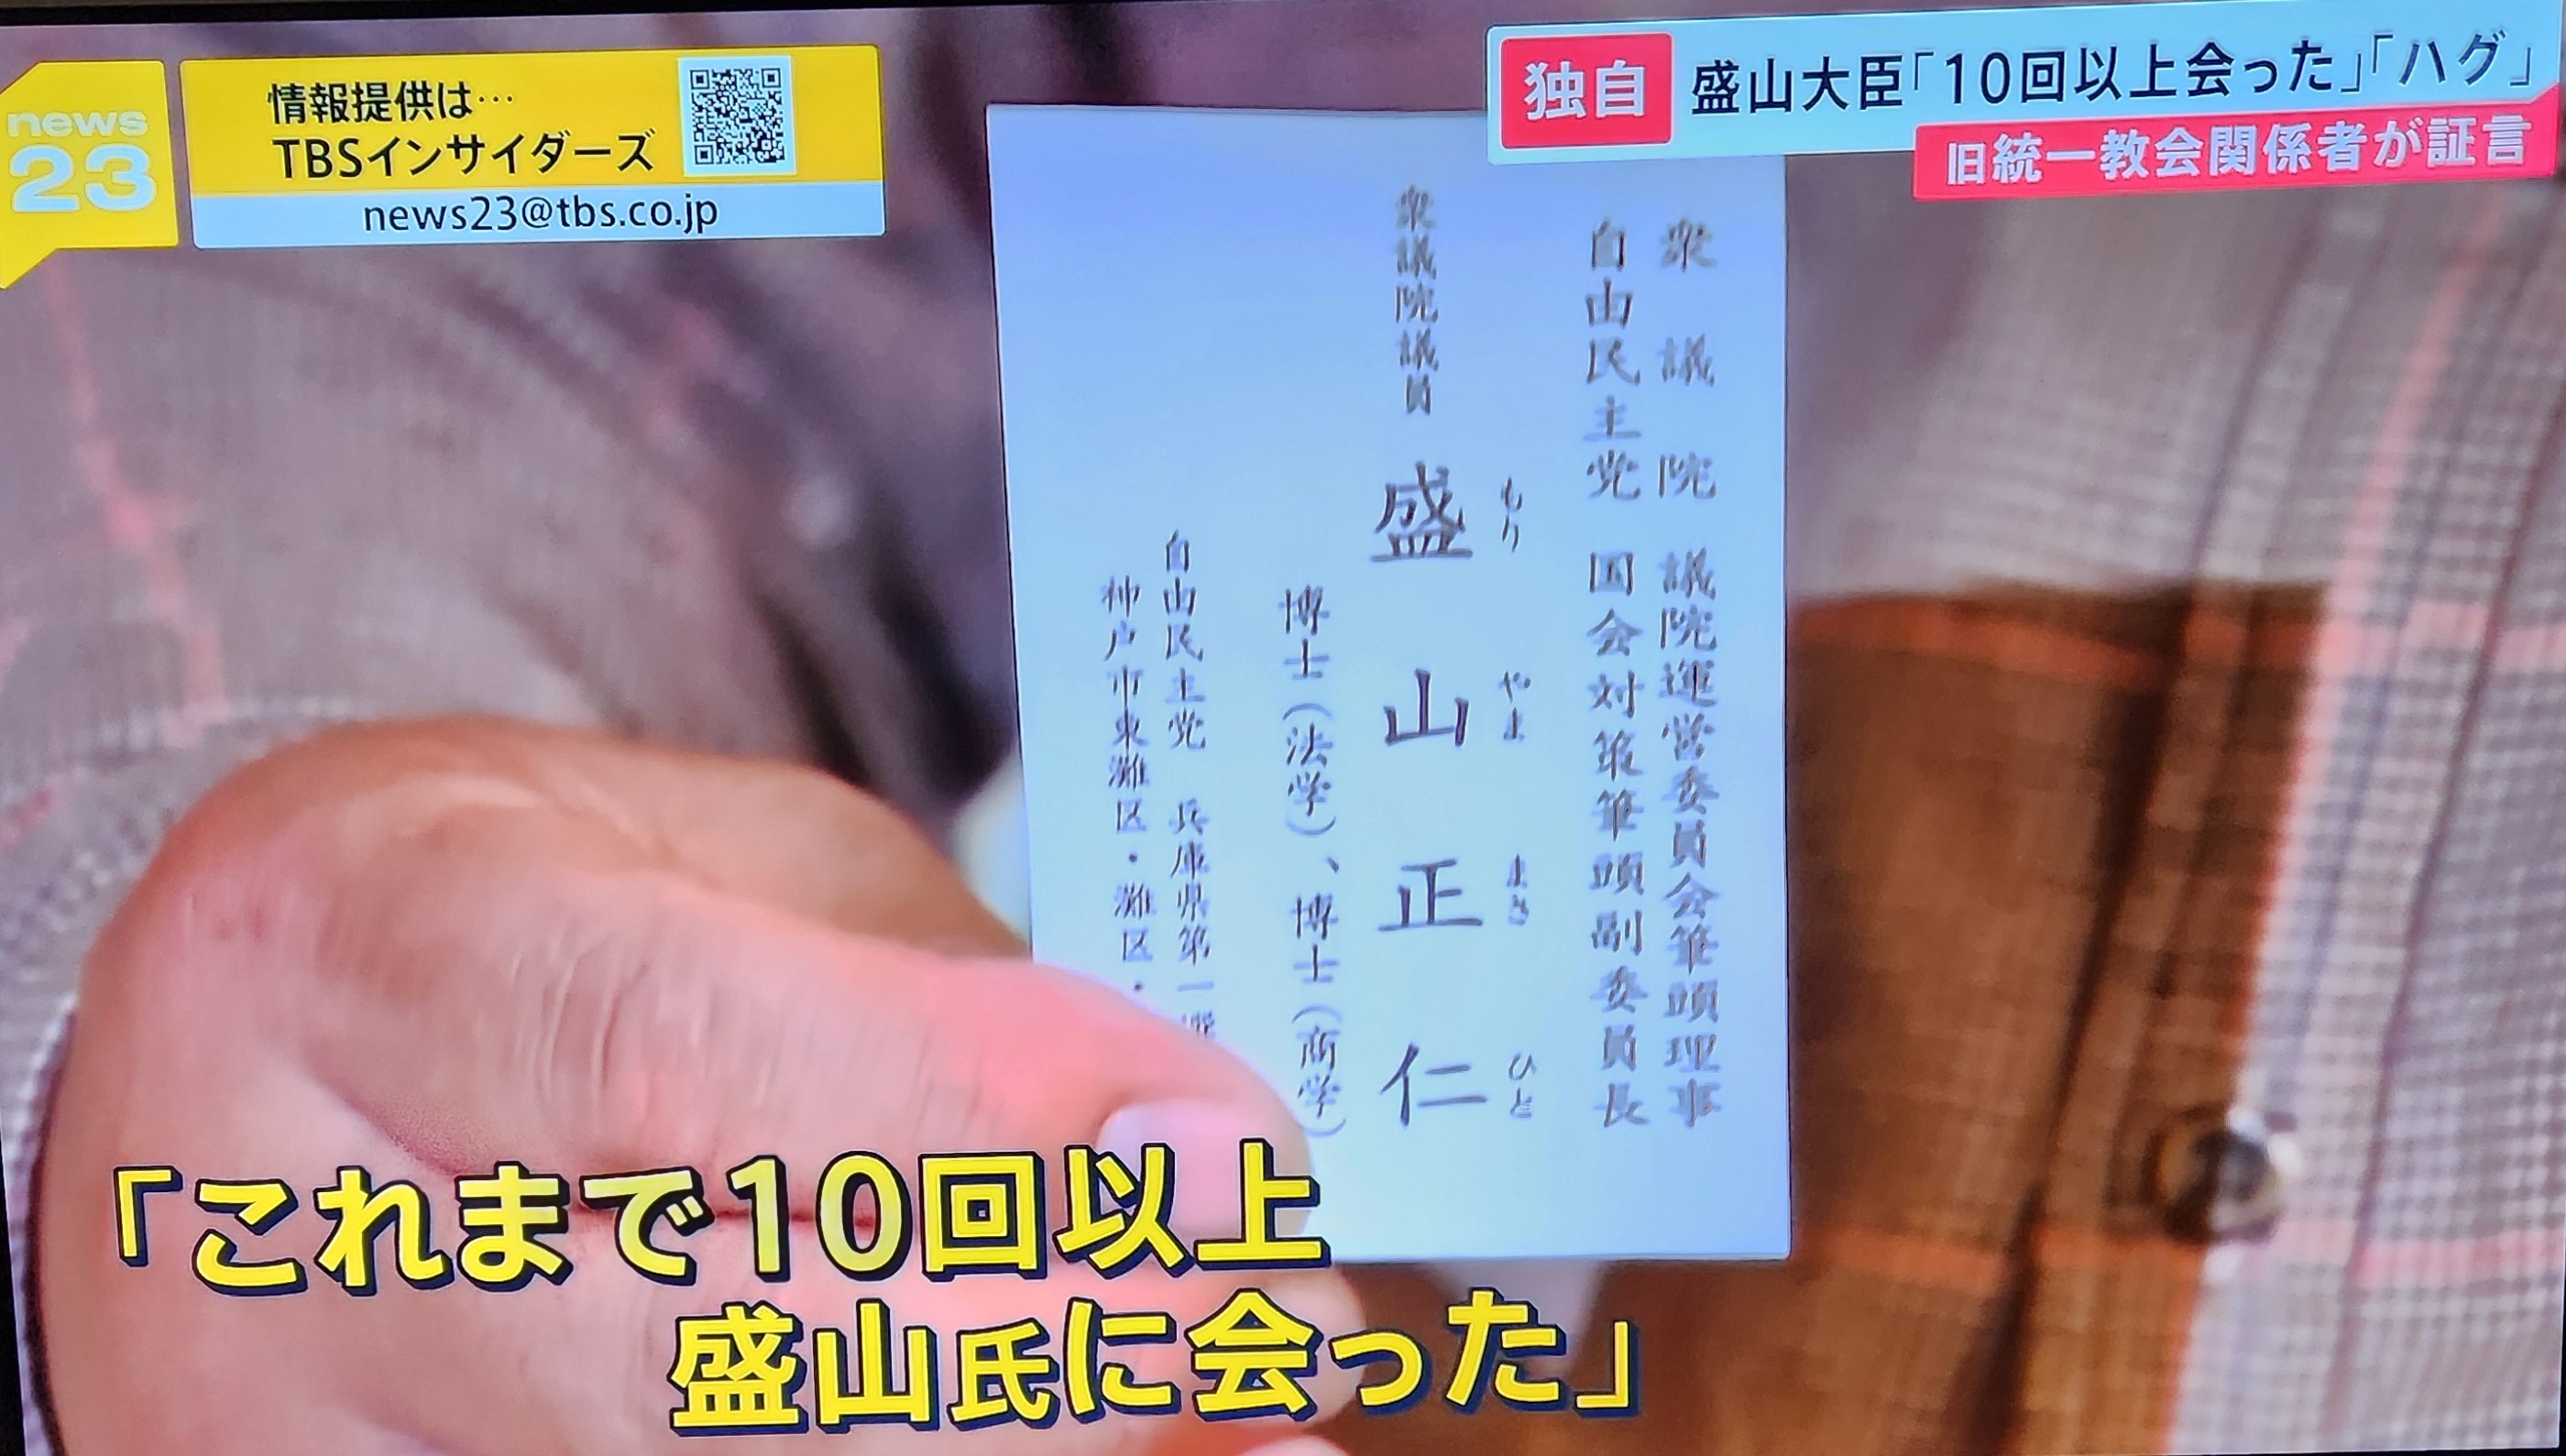 news
23
情報提供は…
TBSインサイダーズ
news23@tbs.co.jp
独自
盛山大臣「10回以上会った」「ハグ」
旧統一教会関係者が証言
衆議院 議院運営委員会筆頭理事
自由民主党 国会対策筆頭副委員長
もり やま まさ ひと
衆議院議員 盛山正仁
博士(法学)、博士(商学)
自由民主党 兵庫県第一選
神戸市東灘区・灘区・
「これまで10回以上
盛山氏に会った」